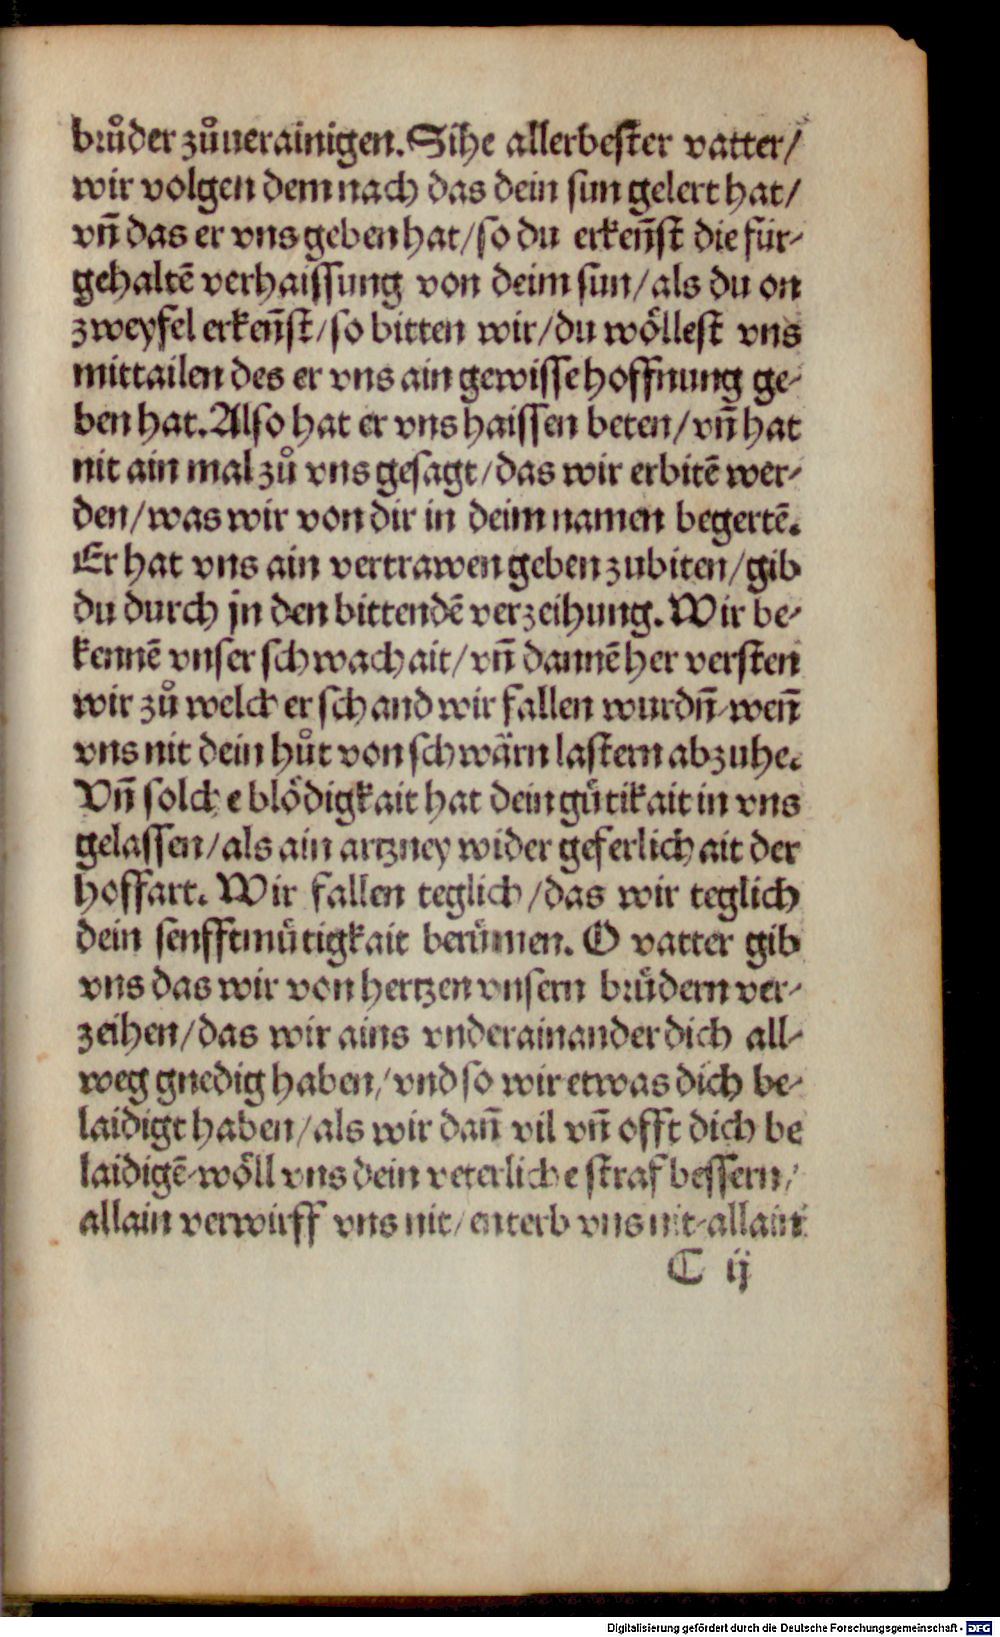 brůder zůuerainigen. Sihe allerbester vatter/
wir volgen dem nach das dein sun gelert hat/
vn̄ das er vns geben hat/so du erken̄st die für-
gehaltē verhaissung von deim sun/als du on
zweyfel erken̄st/so bitten wir/du wöllest vns
mittailen des er vns ain gewisse hoffnung ge-
ben hat. Also hat er vns haissen beten/vn̄ hat
nit ain mal zů vns gesagt/das wir erbitē wer-
den/was wir von dir in deim namen begertē.
Er hat vns ain vertrawen geben zubiten/gib
du durch jn den bittendē verzeihung. Wir be-
kennē vnser schwachait/vn̄ dannē her versten
wir zů welcher schand wir fallen wurdn̄/wen̄
vns nit dein hůt von schwärn lastern abzuhe.
Vn̄ solche blödigkait hat dein gütikait in vns
gelassen/als ain artzney wider geferlichait der
hoffart. Wir fallen teglich/das wir teglich
dein senfftmütigkait berümen. O vatter gib
vns das wir von hertzen vnsern brüdern ver-
zeihen/das wir ains vnderainander dich all-
weg gnedig haben/vnd so wir etwas dich be-
laidigt haben/als wir dan̄ vil vn̄ offt dich be
laidigē/wöll vns dein veterliche straf bessern/
allain verwirff vns nit/enterb vns nit/allain
C ij
Digitalisierung gefördert durch die Deutsche Forschungsgemeinschaft - DFG